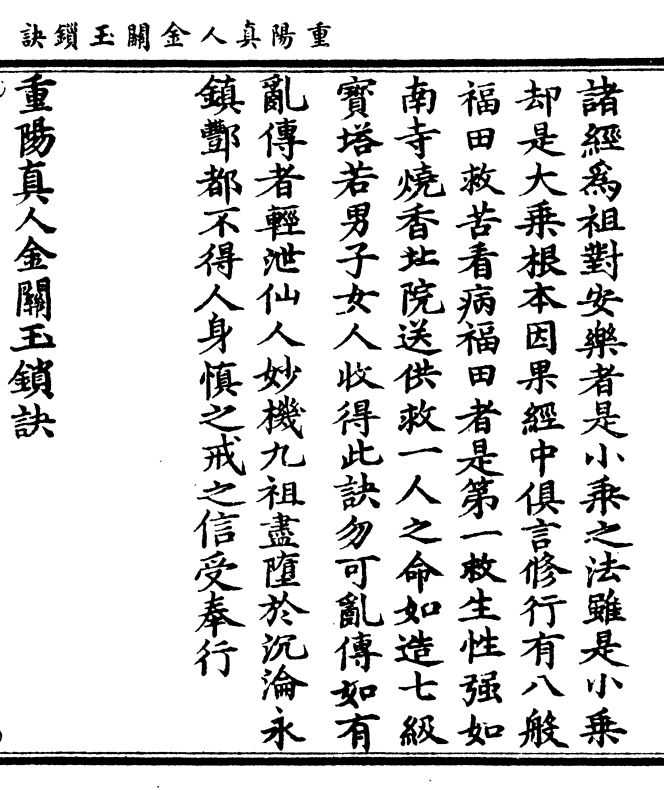 重陽真人金關玉鎖訣
諸經爲祖對安樂者是小乘之法雖是小乘
却是大乘根本因果經中俱言修行有八般
福田救苦看病福田者是第一救生性强如
南寺燒香北院送供救一人之命如造七級
寳塔若男子女人收得此訣勿可亂傳如有
亂傳者輕泄仙人妙機九祖盡墮於沉淪永
鎮酆都不得人身慎之戒之信受奉行
重陽真人金關玉鎖訣